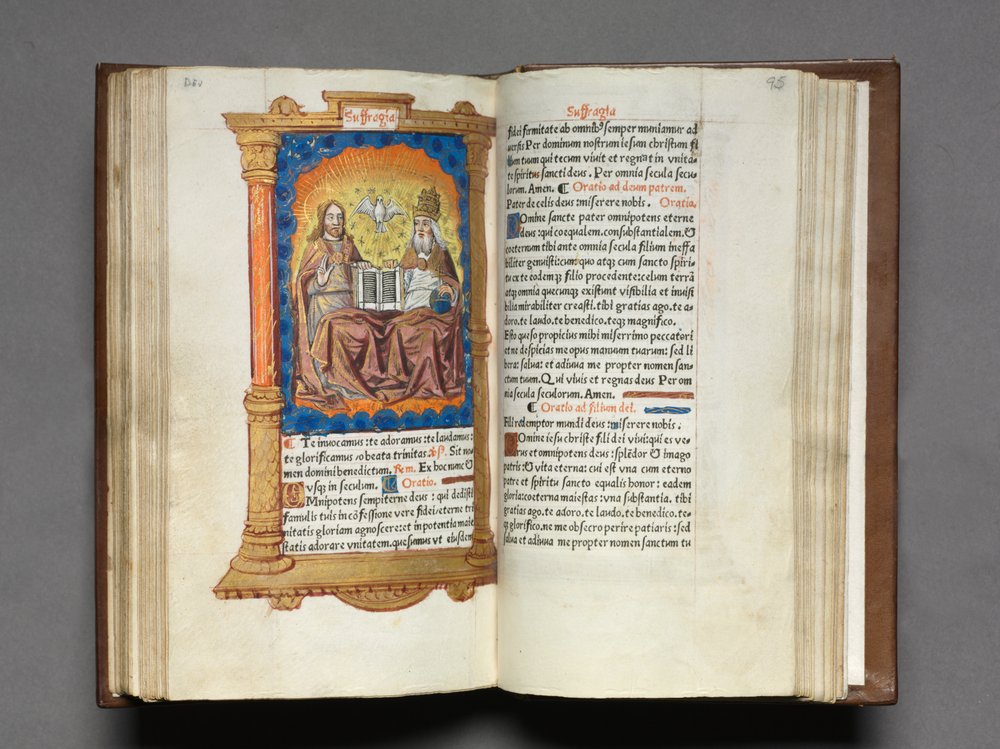 Suffragia
¶ Te inuocamus: te adoramus: te laudamus:
te glorificamus / o beata trinitas. ℣. Sit no-
men domini benedictum. Rem. Ex hoc nunc &
vsq; in seculum. Oratio.
OMnipotens sempiterne deus: qui dedisti
famulis tuis in cõfessione vere fidei eterne tri
nitatis gloriam agnoscere: et in potentia maie
statis adorare vnitatem. quesumus vt eiusdem
95
Suffragia
fidei firmitate ab omnibꝰ semper muniamur ad
uersis Per dominum nostrum iesum christum fi
lium tuum qui tecum viuit et regnat in vnita-
te spiritus sancti deus. Per omnia secula secu
lorum. Amen. ¶ Oratio ad deum patrem.
Pater de celis deus: miserere nobis. Oratio.
DOmine sancte pater omnipotens eterne
deus: qui coequalem. consubstantialem. &
coeternum tibi ante omnia secula filium ineffa
biliter genuisti: cum quo atq; cum sancto spiri-
tu ex te eodemq; filio procedente: celum terrã
atq; omnia quecunque existunt visibilia et inuisi
bilia mirabiliter creasti. tibi gratias ago. te a-
doro. te laudo. te benedico. teq; magnifico.
Esto queso propicius mihi miserrimo peccatori
et ne despicias me opus manuum tuarum: sed li
bera: salua: et adiuua me propter nomen san-
ctum tuum. Qui viuis et regnas deus Per om
nia secula seculorum. Amen.
¶ Oratio ad filium dei.
Fili redemptor mundi deus: miserere nobis.
DOmine iesu christe fili dei viui: qui es ve-
rus et omnipotens deus: splẽdor & imago
patris: & vita eterna: cui est vna cum eterno
patre et spiritu sancto equalis honor: eadem
gloria: coeterna maiestas: vna substantia. tibi
gratias ago. te adoro. te laudo. te benedico. te-
q; glorifico. ne me obsecro perire patiaris: sed
salua et adiuua me propter nomen sanctum tu